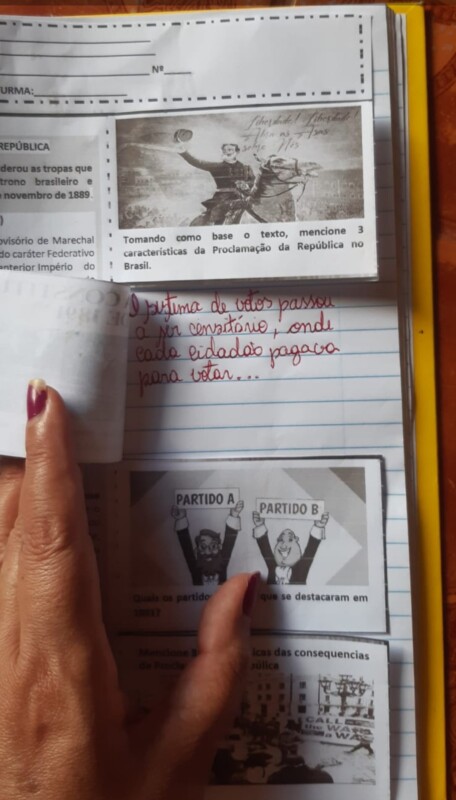 Nº
URMA:
REPÚBLICA
derou as tropas que
trono brasileiro e
novembro de 1889.
visório de Marechal
do caráter Federativo
anterior Império do
Liberdade! Liberdade!
Abra as Asas
sobre Nós
Tomando como base o texto, mencione 3
características da Proclamação da República no
Brasil.
O sistema de votos passou
a ser censitário, onde
cada cidadão pagava
para votar...
PARTIDO A
PARTIDO B
que se destacaram em
Mencione 3 icas das consequencias
CALL
the WAR
a WAR